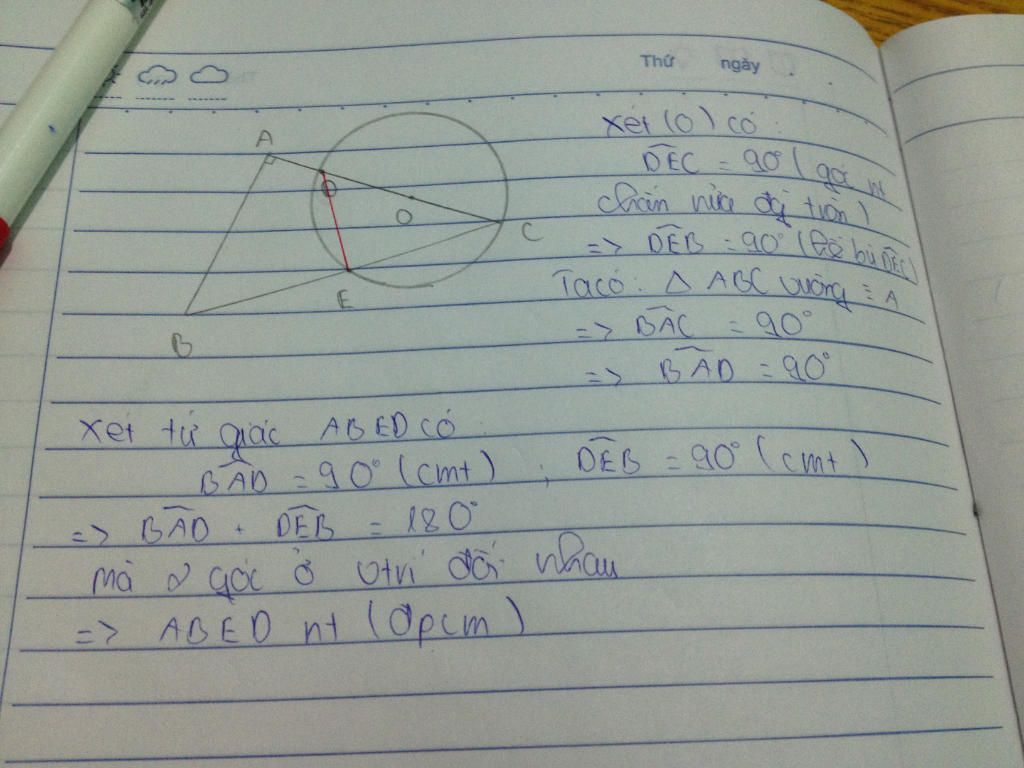 Thứ ngày
A
D
O
C
E
B
Xét (O) có :
D͡EC = 90° ( góc nt
chắn nửa đg tròn )
=> D͡EB = 90° ( bù D͡EC)
Ta có : Δ ABC vuông A
=> B͡AC = 90°
=> B͡AD = 90°
Xét tứ giác ABED có :
B͡AD = 90° (cmt) ; D͡EB = 90° (cmt)
=> B͡AD + D͡EB = 180°
mà 2 góc ở vtrí đối nhau
=> ABED nt (đpcm)